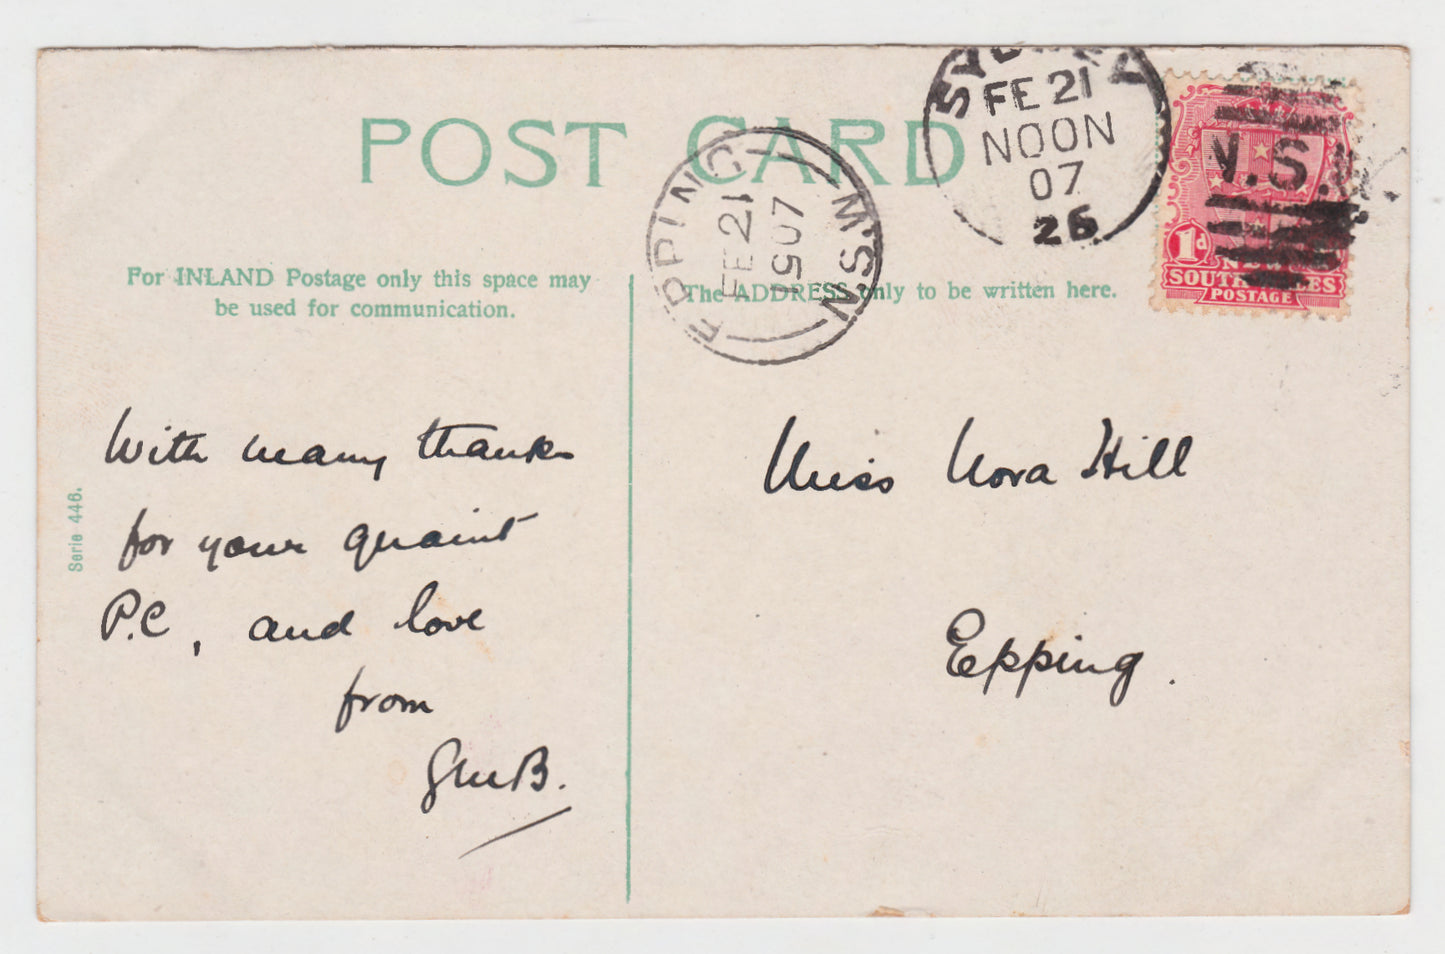 POST CARD
SYDNEY
FE 21
NOON
07
26
N.S.W.
1d
NEW
SOUTH WALES
POSTAGE
EPPING
FE 21
1907
N.S.W
For INLAND Postage only this space may
be used for communication.
The ADDRESS only to be written here.
Serie 446.
With many thanks
for your quaint
P.C, and love
from
Miss Nora Hill
Epping.